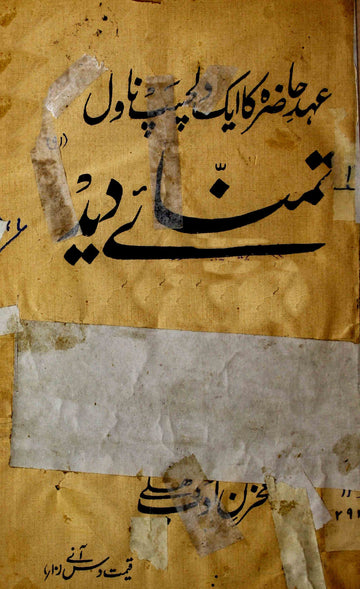 عہدِ حاضرہ کا ایک دلچسپ ناول
تمنّائے دید
مخزنِ ادب دہلی
قیمت دس آنے